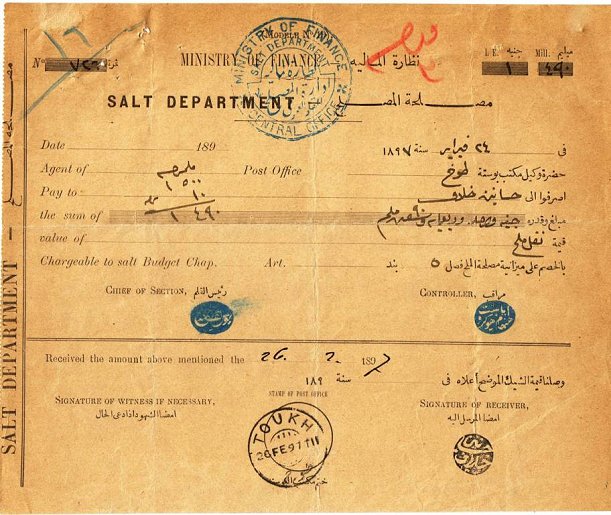 MODELE N
N° ٧٢٥ نمرة
MINISTRY OF FINANCE نظارة المالية
L.E. جنيه Mill. مليم
١ ٤٩٠
MINISTRY OF FINANCE
SALT DEPARTMENT
CENTRAL OFFICE
SALT DEPARTMENT مصلحة الملح
Date 189 في ٢٤ فبراير سنة ١٨٩٧
Agent of Post Office حضرة وكيل مكتب بوستة طوخ
Pay to اصرفوا الى
مليم جم
١ ٥٠٠
١٠
١ ٤٩٠
the sum of مبلغ وقدره جنيه واحد
value of قيمة نقل ملح
Chargeable to salt Budget Chap. Art. بالخصم على ميزانية مصلحة الملح فصل ٥ بند
CHIEF OF SECTION, رئيس القلم CONTROLLER, مراقب
Received the amount above mentioned the 26. 2. 1897 وصلنا قيمة الشيك الموضح أعلاه فى
سنة ١٨٩
STAMP OF POST OFFICE
SIGNATURE OF WITNESS IF NECESSARY, SIGNATURE OF RECEIVER,
امضا الشهود اذا دعى الحال امضا المرسل اليه
TOUKH
26 FE 97 III
SALT DEPARTMENT — مصلحة الملح